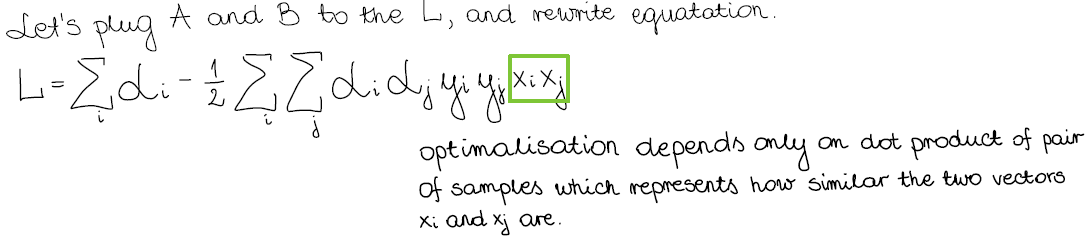 Let's plug A and B to the L, and rewrite equatation.
L = ∑_i α_i - 1/2 ∑_i ∑_j α_i α_j y_i y_j x_i x_j
optimalisation depends only on dot product of pair
of samples which represents how similar the two vectors
x_i and x_j are.